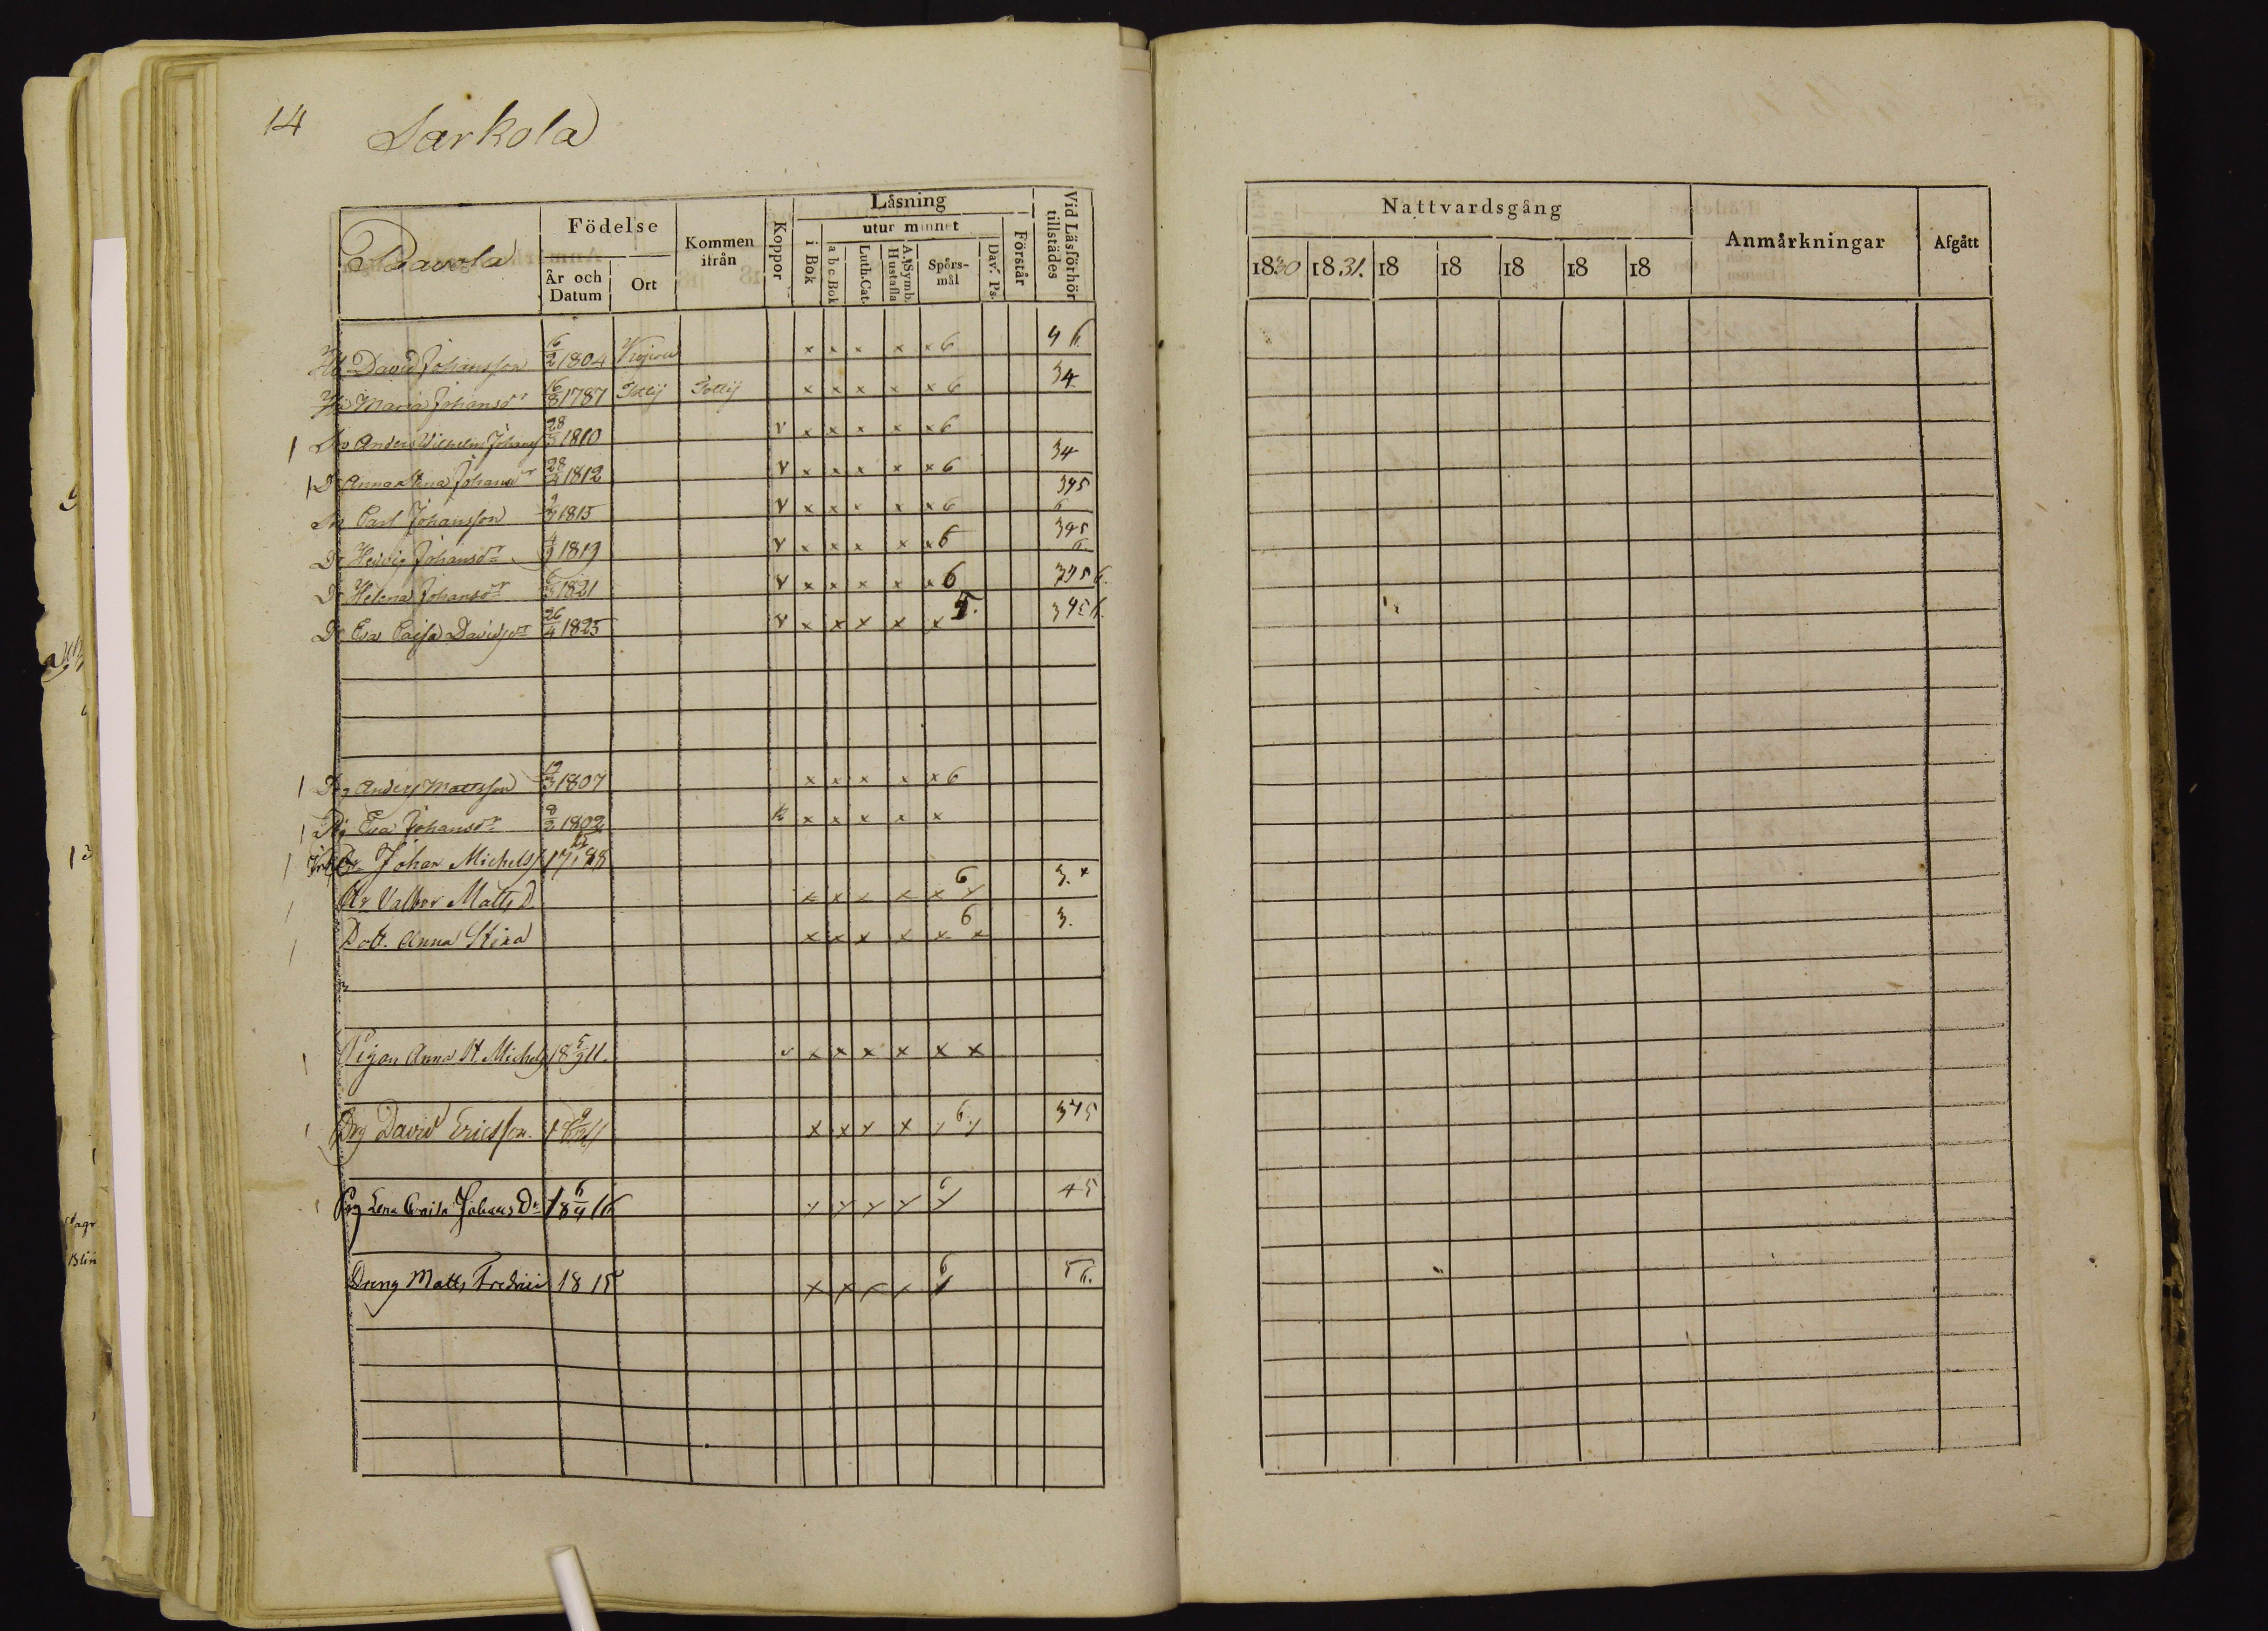 14 Sarkola
Pavola
Födelse
År och Datum
Ort
Kommen ifrån
Koppor
Läsning
utur minnet
i Bok
a b c Bok
Luth. Cat.
A. Symb. Hustafla
Spörsmål
Dav. Ps.
Förstår
Vid Läsförhör tillstädes
David Johansson 16/2 1804 x x x x x 6 4 6
Maria Johansdr 16/8 1787 x x x x x 6 34
1 Anders Wilhelm 1810 v x x x x x 6
1 Dr Anna Stina Johansdr 1812 v x x x x x 6 34
Sn Carl Johansson 1815 v x x x x x 6 345 6
Dr Hedvig Johansdr 1819 v x x x x x 6 345 6
Dr Helena Johansdr 1821 v x x x x x 6 345 6.
Dr Eva Cajsa Davidsdr 26/4 1825 v x x x x x 5. 345 6.
1 Drg Anders Mattsson 1807 x x x x x 6
1 Pig Eva Johansdr 8/2 1802 k x x x x x
1 Johan Michelss
Valbor Matts D. x x x x x 6 x 3. x
Dott. Anna Stina x x x x x 6 x 3.
Pigan Anna St. Michels 18 5/9 11. v x x x x x x
Drg David Ericsson. x x x x 6 345
Pig Lena Cajsa Johans Dr 18 6/4 16 45
Dreng Matts 1815 6 56.
Nattvardsgång
1830 1831. 18 18 18 18 18
Anmärkningar
Afgått